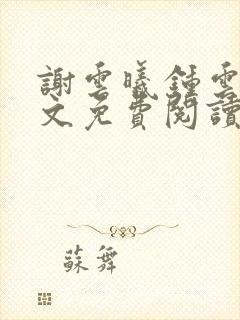 謝雲曦鍾雲
文免費閱讀
蘇舞